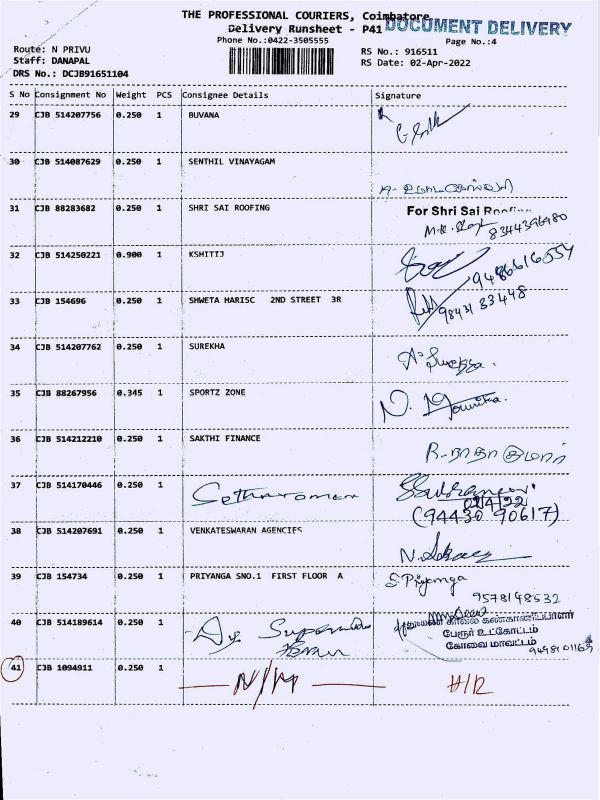 THE PROFESSIONAL COURIERS, Coimbatore
DOCUMENT DELIVERY
Delivery Runsheet - P41
Phone No.:0422-3505555
Page No.:4
Route: N PRIVU
RS No.: 916511
Staff: DANAPAL
RS Date: 02-Apr-2022
DRS No.: DCJB91651104
S No Consignment No Weight PCS Consignee Details Signature
29 CJB 514207756 0.250 1 BUVANA
30 CJB 514087629 0.250 1 SENTHIL VINAYAGAM
31 CJB 88283682 0.250 1 SHRI SAI ROOFING For Shri Sai Roofing
8344396980
32 CJB 514250221 0.900 1 KSHITIJ
9486616554
33 CJB 154696 0.250 1 SHWETA HARISC 2ND STREET 3R
9843133448
34 CJB 514207762 0.250 1 SUREKHA
35 CJB 88267956 0.345 1 SPORTZ ZONE
36 CJB 514212210 0.250 1 SAKTHI FINANCE
R-நாதாகுமார்
37 CJB 514170446 0.250 1 Sethuraman
02/4/22
(94430 90617)
38 CJB 514207691 0.250 1 VENKATESWARAN AGENCIES
39 CJB 154734 0.250 1 PRIYANGA SNO.1 FIRST FLOOR A S.Priyanga
9578148532
40 CJB 514189614 0.250 1
காவல் கண்காணிப்பாளர்
பேரூர் உட்கோட்டம்
கோவை மாவட்டம்
41 CJB 1094911 0.250 1 N/M H/R